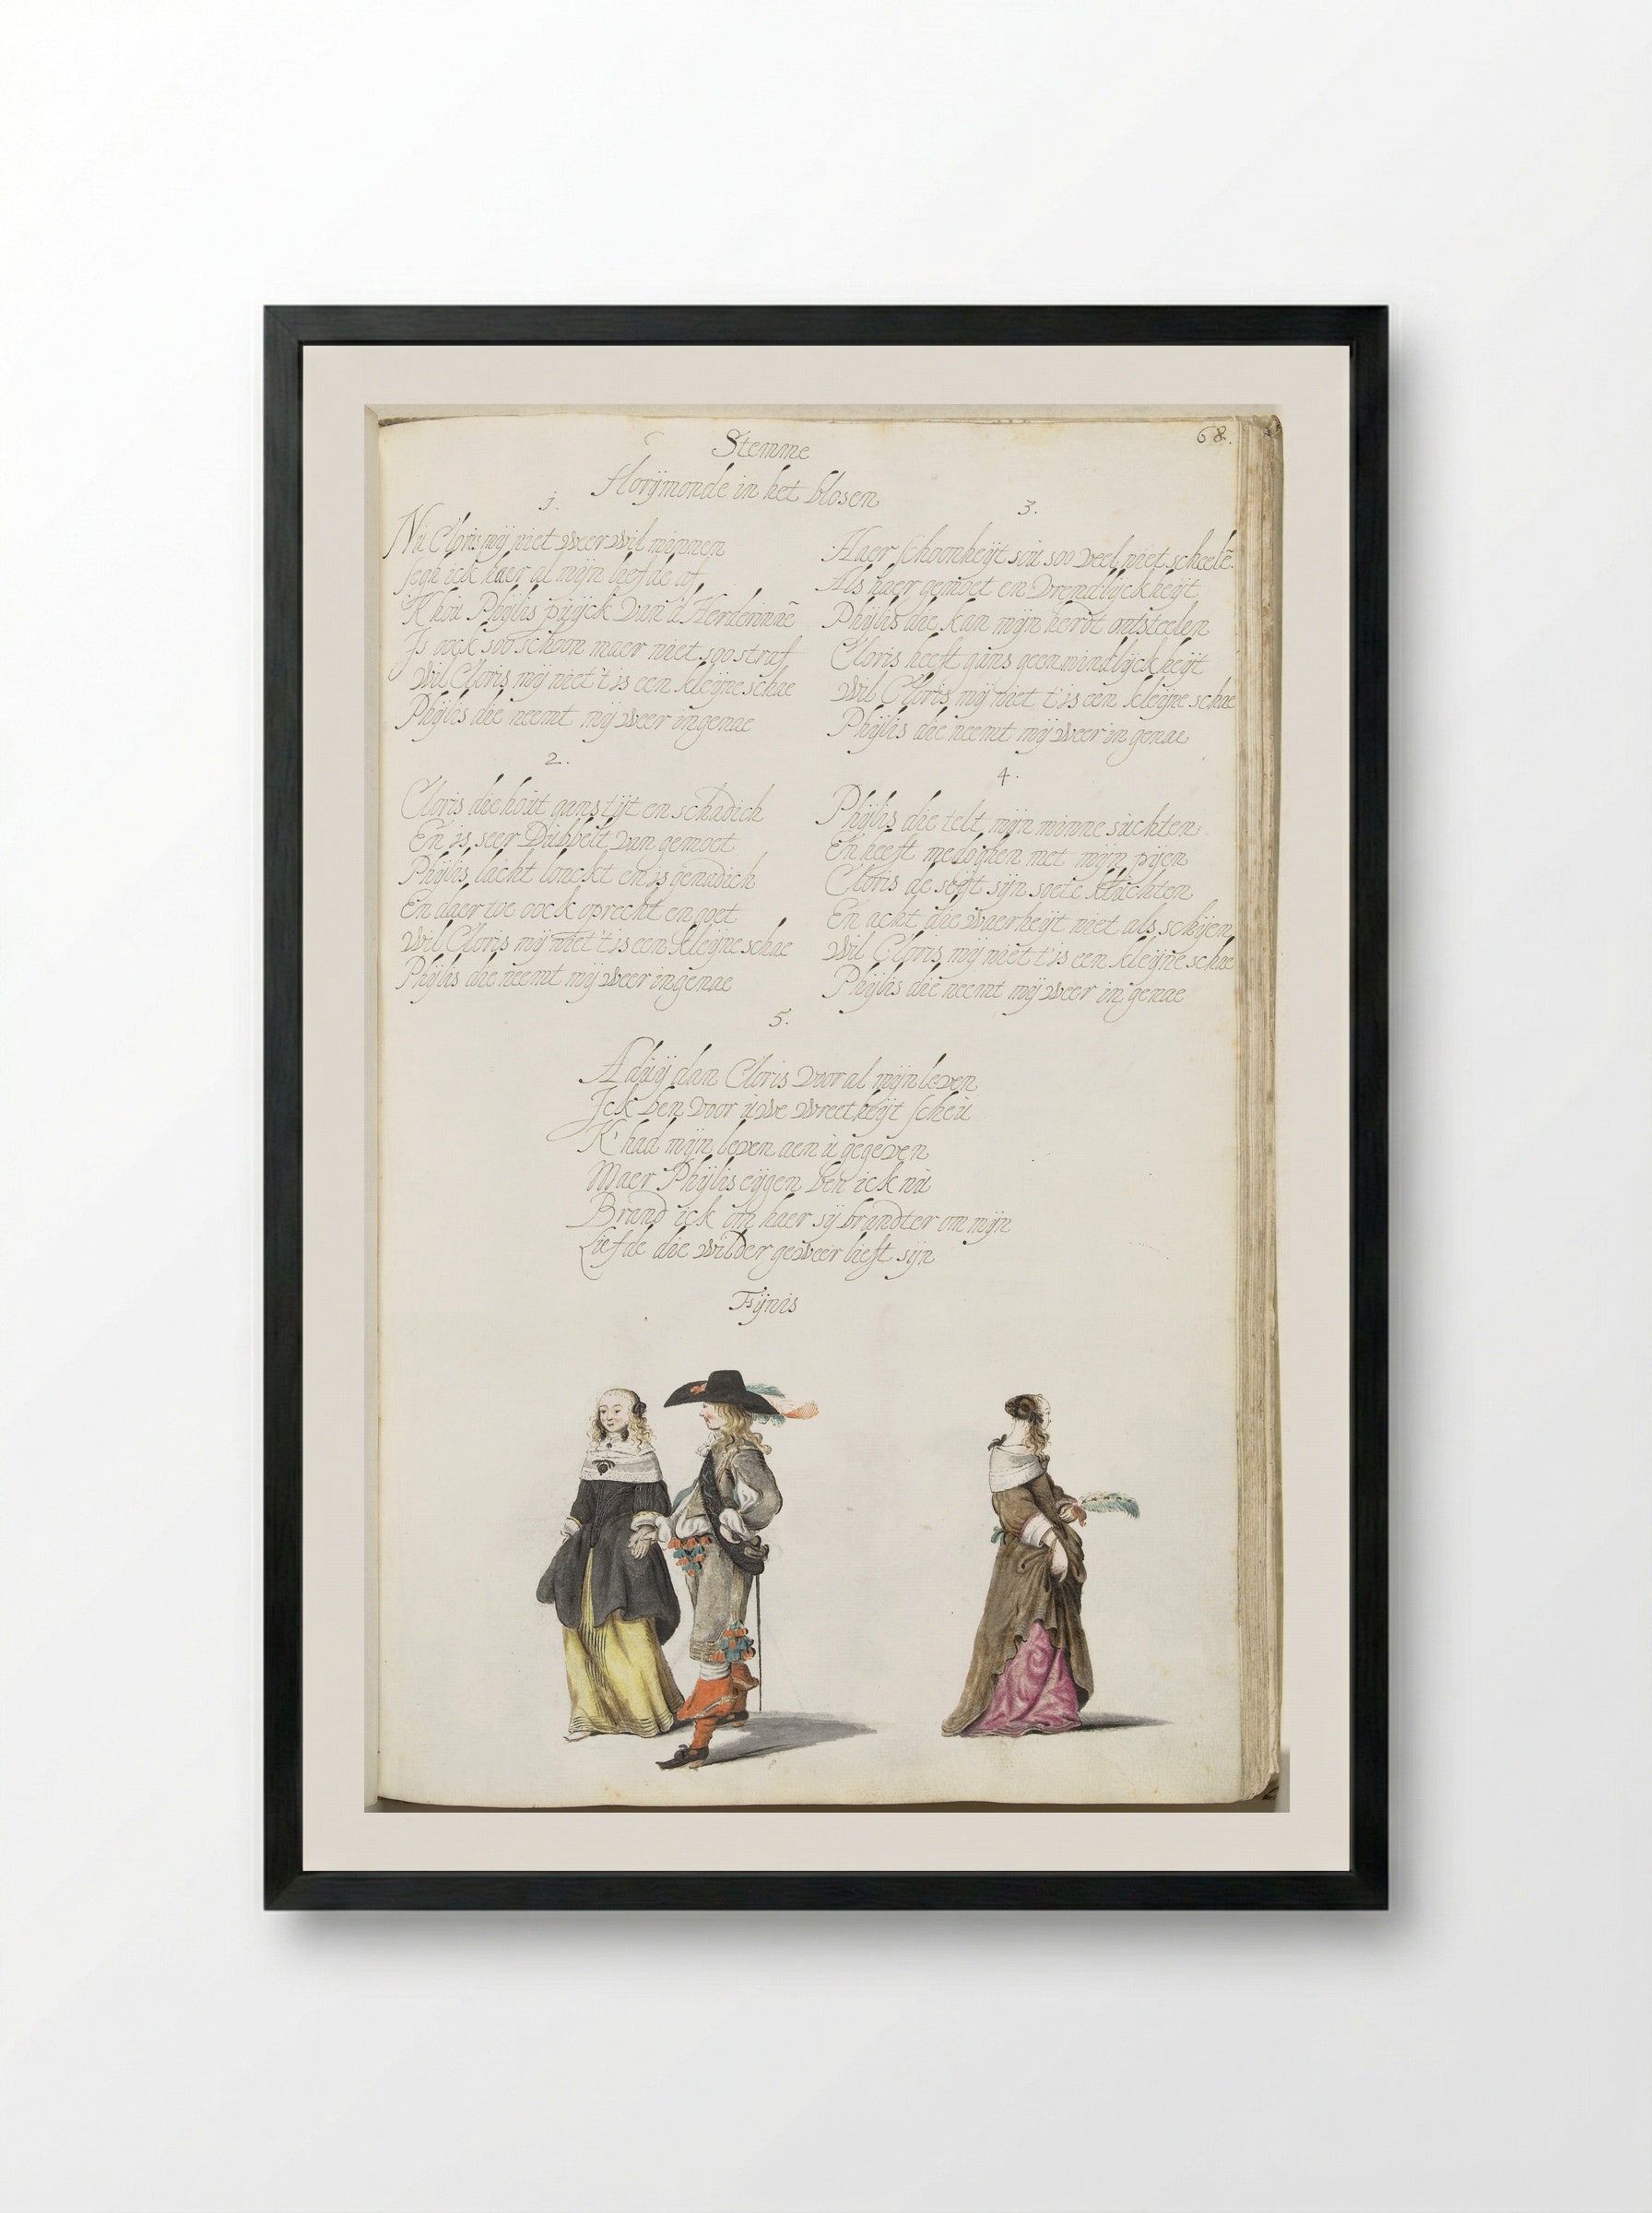 68.
Stemme
Florÿmonde in het blosen
1.
Nu Cloris mÿ niet weer wil minnen
segh ick haer al mijn liefde of
K hou Phÿlis puÿck van d'Herderinnē
Is oock soo schoon maer niet soo straf
Wil Cloris mÿ niet t is een kleÿne schae
Phÿlis die neemt mÿ weer in genae
2.
Cloris die hout gans tÿt en schadich
En is seer Dubbelt van gemoet
Phÿlis lacht lonckt en is genadich
En daer toe oock oprecht en goet
Wil Cloris mÿ niet t is een kleÿne schae
Phÿlis die neemt mÿ weer in genae
3.
Haer schoonheÿt sou soo veel niet scheelē
Als haer gemoet en vrendlÿckheÿt
Phÿlis die kan mÿn herdt ontsteelen
Cloris heeft gans geen mindlÿckheÿt
Wil Cloris mÿ niet t is een kleÿne schae
Phÿlis die neemt mÿ weer in genae
4.
Phÿlis die telt mÿn minne suchten
En heeft medoghen met mÿn pÿen
Cloris de seÿt sÿn soete kluchten
En acht die waerheÿt niet als schÿen
Wil Cloris mÿ niet t is een kleÿne schae
Phÿlis die neemt mÿ weer in genae
5.
Aduÿ dan Cloris voor al mÿn leven
Ick ben voor uwe wreetheÿt scheu
K had mÿn leven aen u gegeven
Maer Phÿlis eÿgen ben ick nu
Brand ick om haer sÿ brandter om mÿn
Liefde die wilder geweer lieft sÿn
Fÿnis